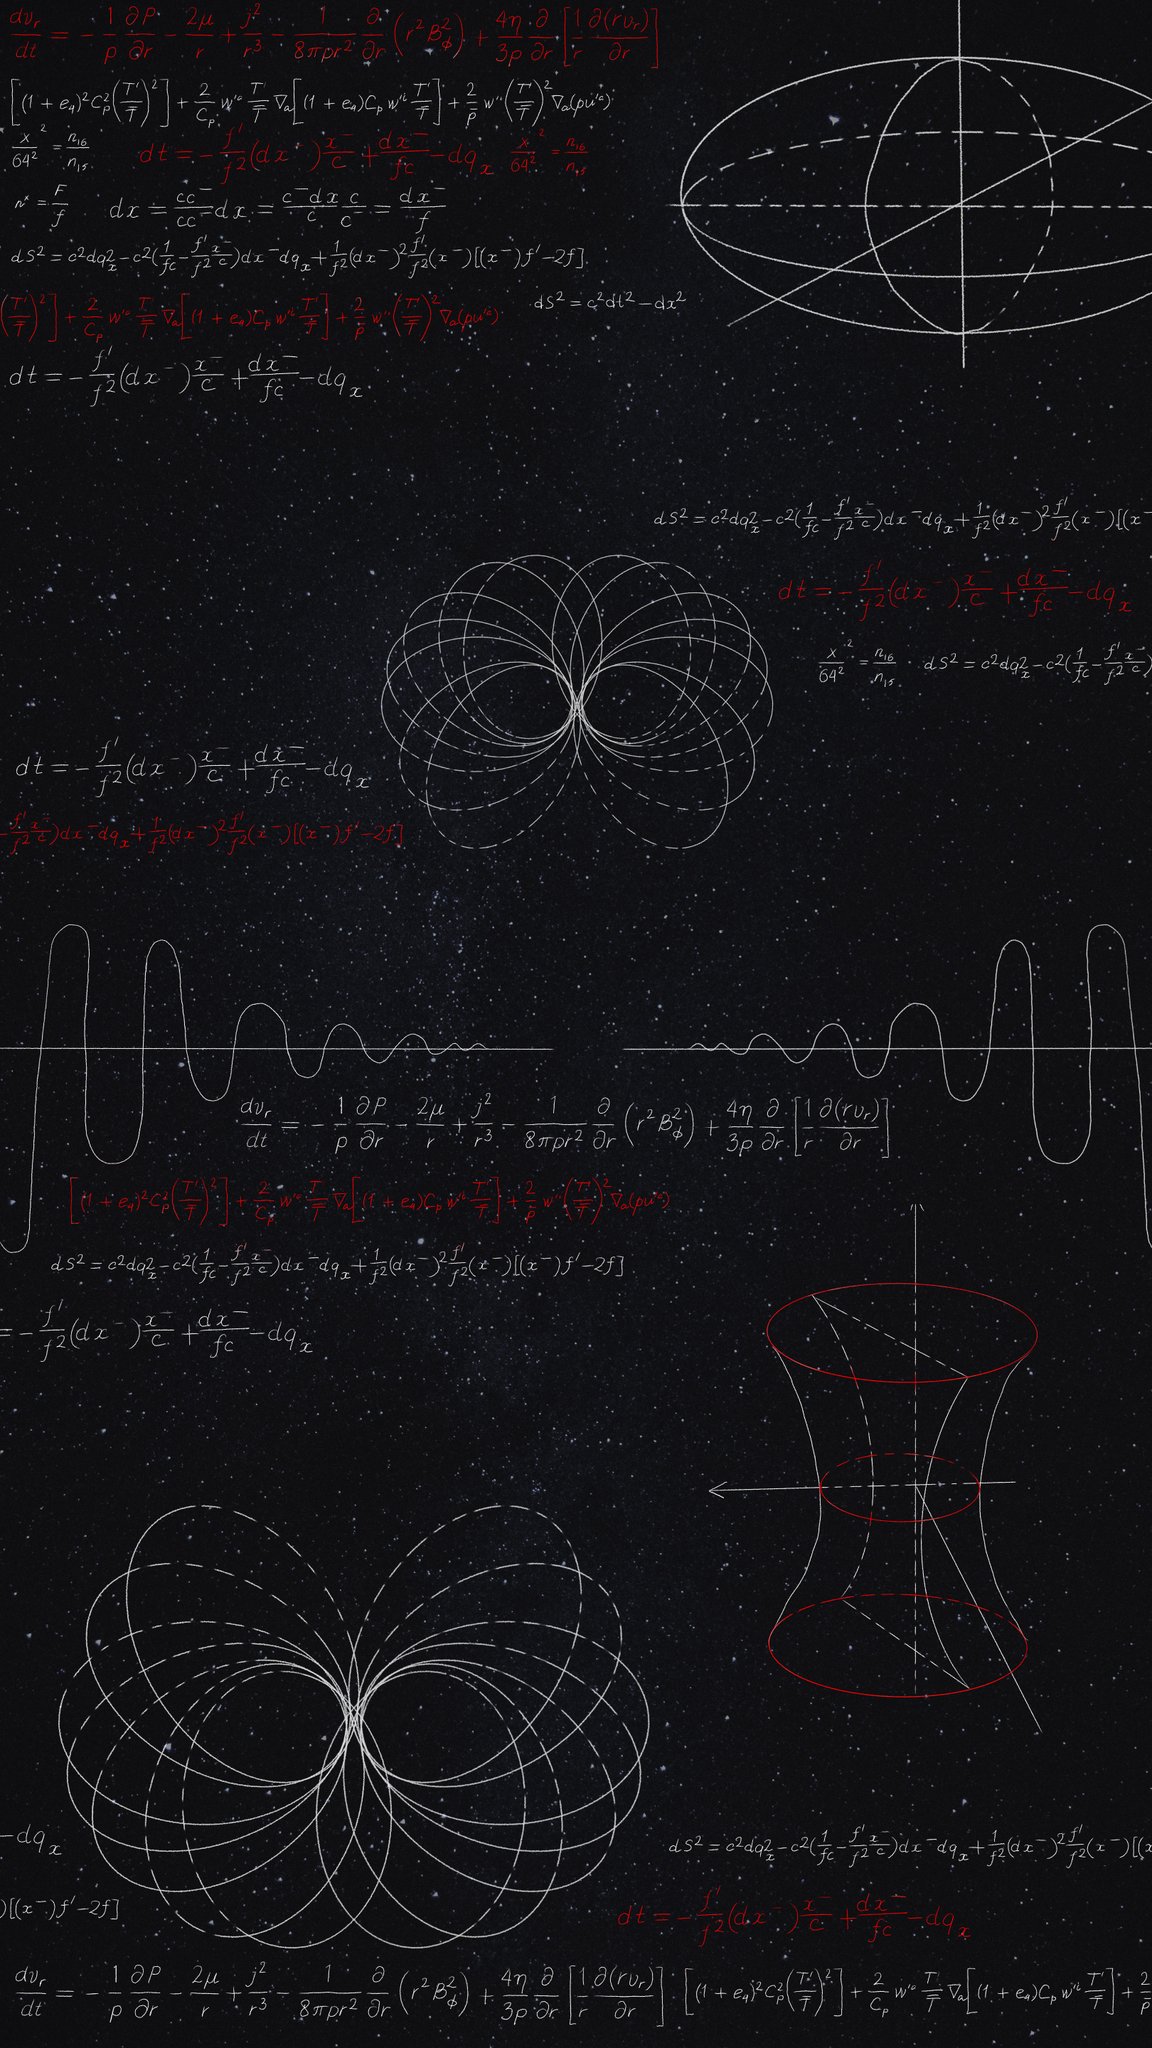 dv_r/dt = - 1/ρ ∂P/∂r - 2μ/r + j²/r³ - 1/8πρr² ∂/∂r (r²B²_ϕ) + 4η/3ρ ∂/∂r [1/r ∂(rv_r)/∂r]
[(1 + e₄)²C²_p(T'/T̿)²] + 2/C_p w'ᵃ T'/T̿ ∇a[(1 + e₄)C_p w'ⁱ T'/T̿] + 2/p̄ w'ⁱ(T'/T̿)²∇a(pu'ᵃ)
x²/64² = n₁₆/n₁₅ dt = - f'/f²(dx⁻)x⁻/c + dx⁻/fc - dq_x x²/64² = n₁₆/n₁₅
nˣ = F/f dx = cc⁻/cc⁻ dx = c⁻dx/c c/c⁻ = dx⁻/f
dS² = c²dq²_x - c²(1/fc - f'/f² x⁻/c)dx⁻dq_x + 1/f²(dx⁻)² f'/f²(x⁻)[(x⁻)f' - 2f]
(T'/T̿)²] + 2/C_p w'ᵃ T'/T̿ ∇a[(1 + e₄)C_p w'ⁱ T'/T̿] + 2/p̄ w'ⁱ(T'/T̿)²∇a(pu'ᵃ) dS² = c²dt² - dx²
dt = - f'/f²(dx⁻)x⁻/c + dx⁻/fc - dq_x
dS² = c²dq²_x - c²(1/fc - f'/f² x⁻/c)dx⁻dq_x + 1/f²(dx⁻)² f'/f²(x⁻)[(x⁻
dt = - f'/f²(dx⁻)x⁻/c + dx⁻/fc - dq_x
x²/64² = n₁₆/n₁₅ dS² = c²dq²_x - c²(1/fc - f'/f² x⁻/c)
dt = - f'/f²(dx⁻)x⁻/c + dx⁻/fc - dq_x
- f'/f² x⁻/c)dx⁻dq_x + 1/f²(dx⁻)² f'/f²(x⁻)[(x⁻)f' - 2f]
dv_r/dt = - 1/ρ ∂P/∂r - 2μ/r + j²/r³ - 1/8πρr² ∂/∂r (r²B²_ϕ) + 4η/3ρ ∂/∂r [1/r ∂(rv_r)/∂r]
[(1 + e₄)²C²_p(T'/T̿)²] + 2/C_p w'ᵃ T'/T̿ ∇a[(1 + e₄)C_p w'ⁱ T'/T̿] + 2/p̄ w'ⁱ(T'/T̿)²∇a(pu'ᵃ)
dS² = c²dq²_x - c²(1/fc - f'/f² x⁻/c)dx⁻dq_x + 1/f²(dx⁻)² f'/f²(x⁻)[(x⁻)f' - 2f]
= - f'/f²(dx⁻)x⁻/c + dx⁻/fc - dq_x
- dq_x
dS² = c²dq²_x - c²(1/fc - f'/f² x⁻/c)dx⁻dq_x + 1/f²(dx⁻)² f'/f²(x⁻)[(x
)[(x⁻)f' - 2f]
dt = - f'/f²(dx⁻)x⁻/c + dx⁻/fc - dq_x
dv_r/dt = - 1/ρ ∂P/∂r - 2μ/r + j²/r³ - 1/8πρr² ∂/∂r (r²B²_ϕ) + 4η/3ρ ∂/∂r [1/r ∂(rv_r)/∂r] [(1 + e₄)²C²_p(T'/T̿)²] + 2/C_p w'ᵃ T'/T̿ ∇a[(1 + e₄)C_p w'ⁱ T'/T̿] + 2/p̄